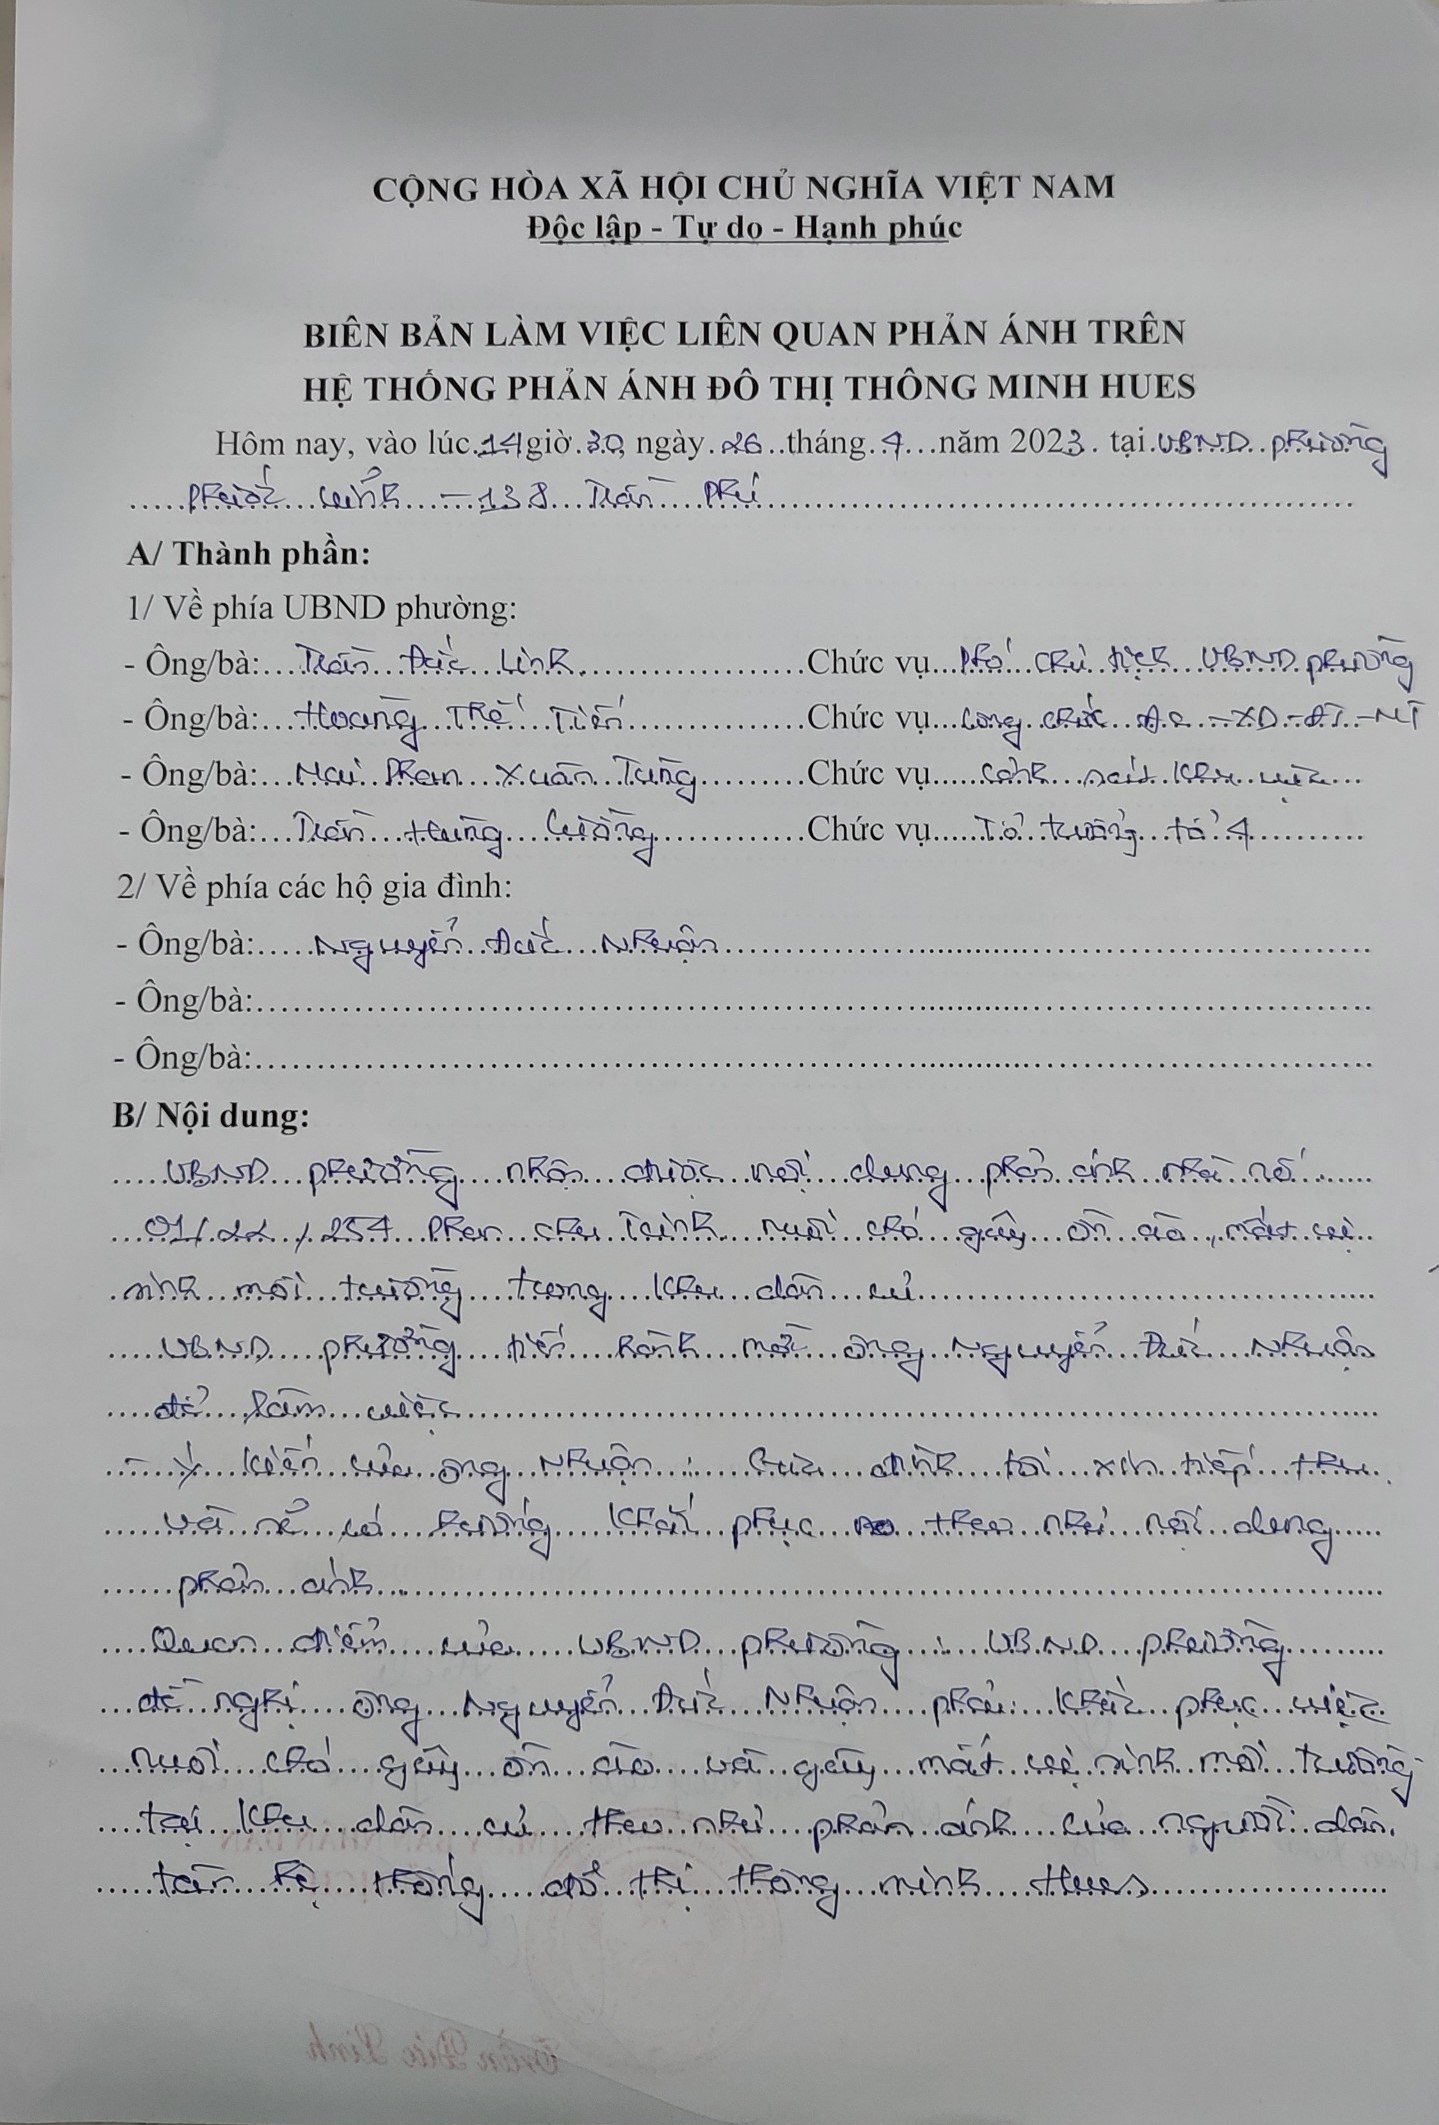 CỘNG HÒA XÃ HỘI CHỦ NGHĨA VIỆT NAM
Độc lập - Tự do - Hạnh phúc
BIÊN BẢN LÀM VIỆC LIÊN QUAN PHẢN ÁNH TRÊN
HỆ THỐNG PHẢN ÁNH ĐÔ THỊ THÔNG MINH HUES
Hôm nay, vào lúc 14 giờ 30, ngày 26 tháng 4 năm 2023. tại UBND phường
Phước Vĩnh - 138 Trần Phú
A/ Thành phần:
1/ Về phía UBND phường:
- Ông/bà: Trần Đức Linh Chức vụ Phó chủ tịch UBND phường
- Ông/bà: Hoàng Thế Tiến Chức vụ Công chức ĐC - XD - ĐT - MT
- Ông/bà: Mai Phan Xuân Tùng Chức vụ Cảnh sát khu vực
- Ông/bà: Trần Hưng Cường Chức vụ Tổ trưởng tổ 4
2/ Về phía các hộ gia đình:
- Ông/bà: Nguyễn Đức Nhuận
- Ông/bà:
- Ông/bà:
B/ Nội dung:
UBND phường nhận được nội dung phản ánh nhà số
01/22/254 Phan Chu Trinh nuôi chó gây ồn ào, mất vệ
sinh môi trường trong khu dân cư
UBND phường tiến hành mời ông Nguyễn Đức Nhuận
để làm việc
- Ý kiến của ông Nhuận: Gia đình tôi xin tiếp thu
và sẽ có hướng khắc phục theo như nội dung
phản ánh.
Quan điểm của UBND phường: UBND phường
đề nghị ông Nguyễn Đức Nhuận phải khắc phục việc
nuôi chó gây ồn ào và gây mất vệ sinh môi trường
tại khu dân cư theo như phản ánh của người dân
trên hệ thống đô thị thông minh Hues
Trần Đức Linh